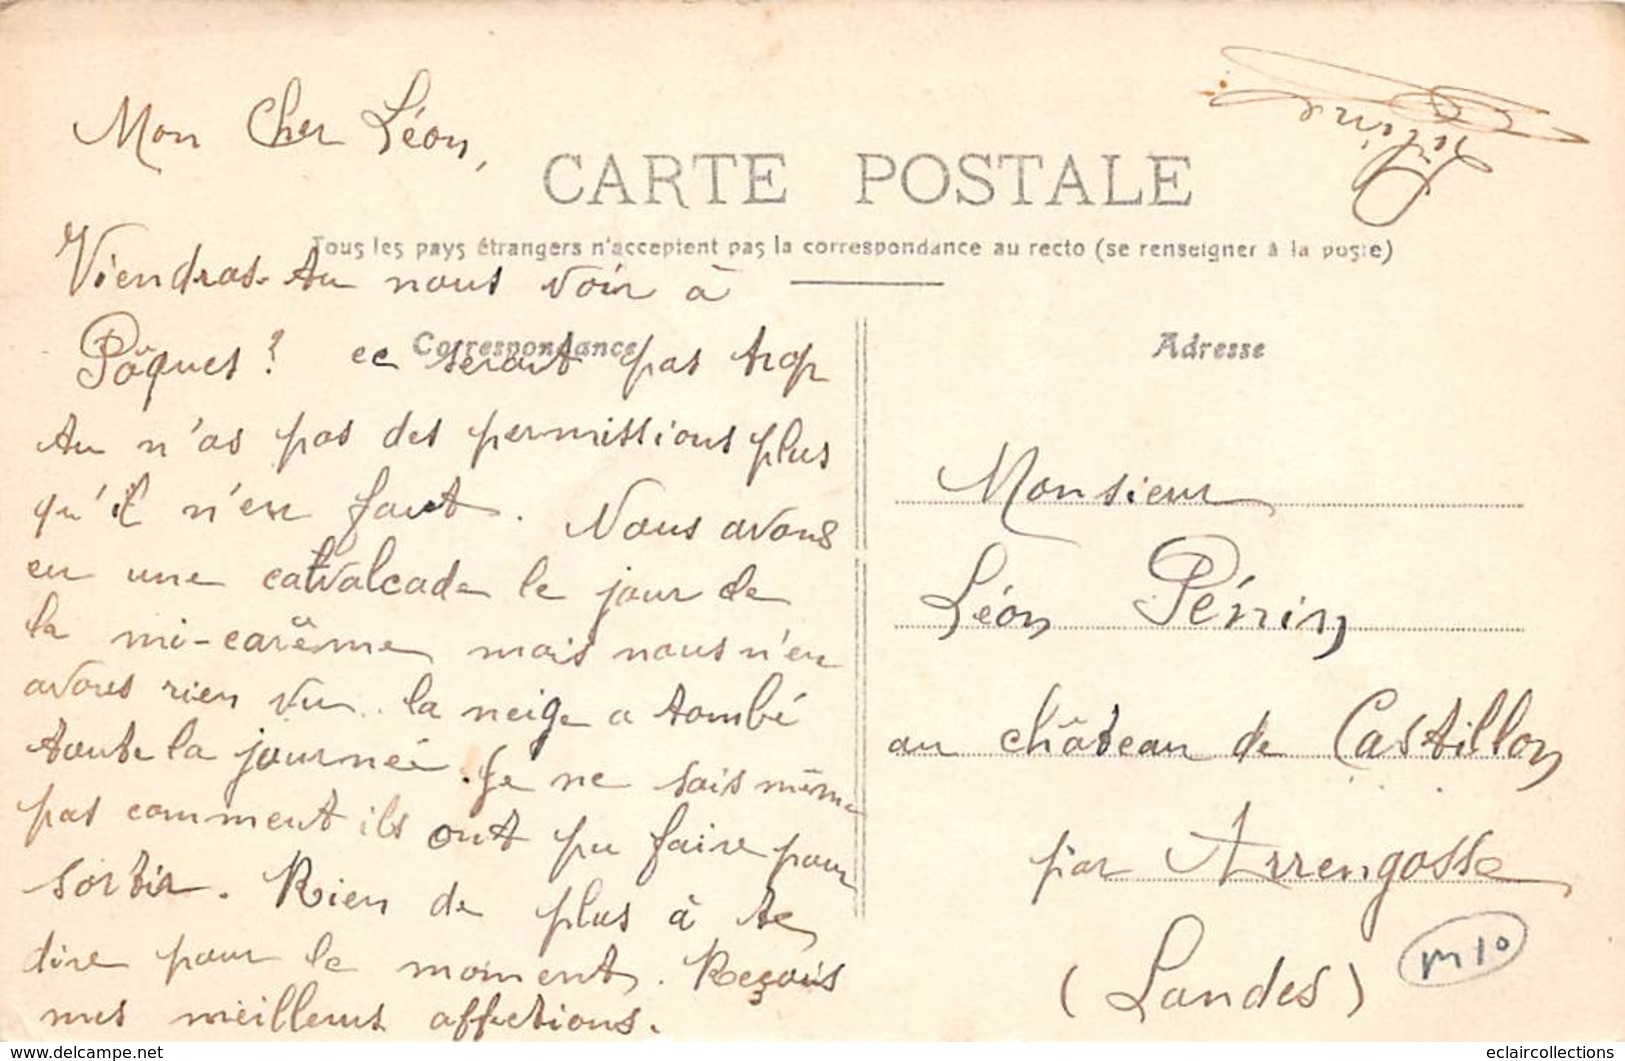 Mon Cher Léon,
CARTE POSTALE
Tous les pays étrangers n'acceptent pas la correspondance au recto (se renseigner à la poste)
Viendras-tu nous voir à
Correspondance
Pâques? ce serait pas trop
tu n'as pas des permissions plus
qu'il n'en faut. Nous avons
eu une cavalcade le jour de
la mi-carême mais nous n'en
avons rien vu. la neige a tombé
toute la journée. Je ne sais même
pas comment ils ont pu faire pour
sortir. Rien de plus à te
dire pour le moment. Reçois
mes meilleurs affections.
Adresse
Monsieur
Léon Périn
au château de Castillon
par Arrengosse
(Landes)
M10
eclaircollections
www.delcampe.net